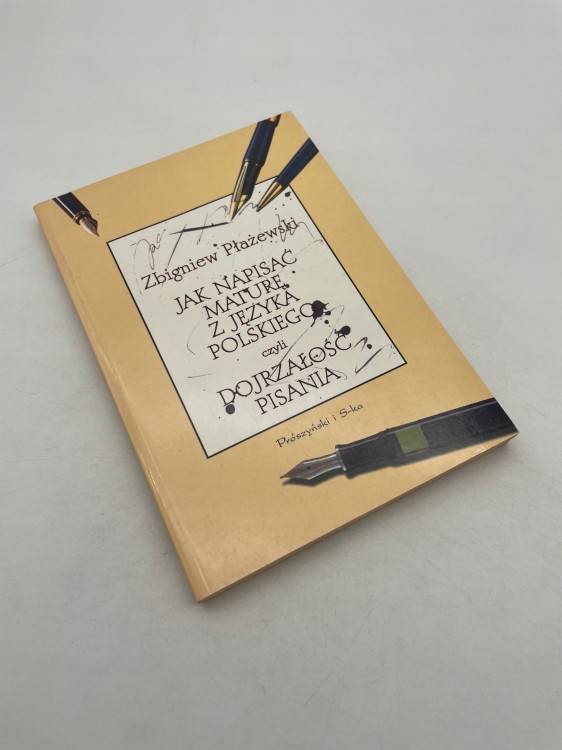 Zbigniew Płażewski
JAK NAPISAĆ
MATURĘ
Z JĘZYKA
POLSKIEGO
czyli
DOJRZAŁOŚĆ
PISANIA
Prószyński i S-ka